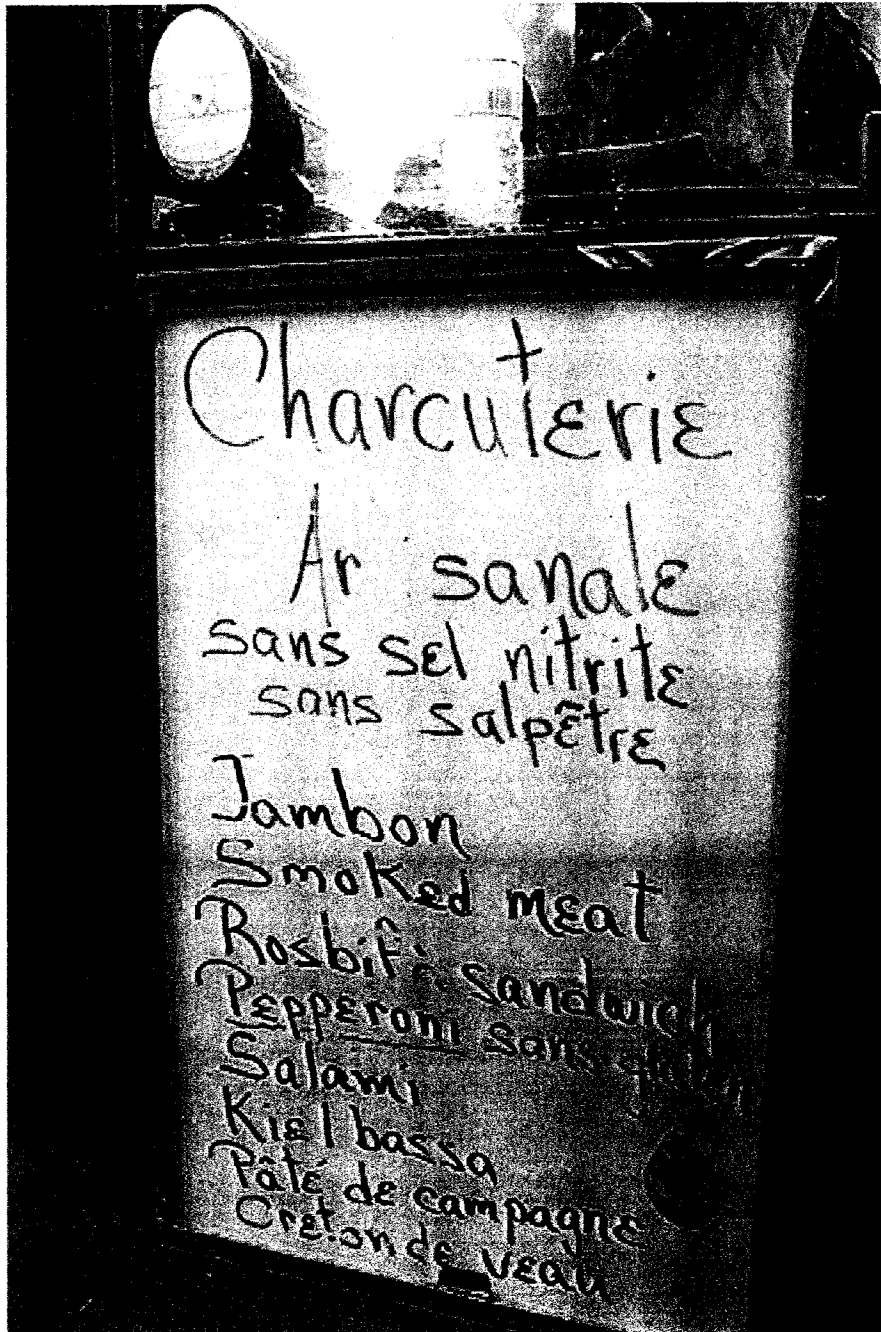 Charcuterie
Ar sanale
sans sel nitrite
sans salpêtre
Jambon
Smoked meat
Rosbif sandwich
Pepperoni sans
Salami
Kielbassa
Pâté de campagne
Creton de veau